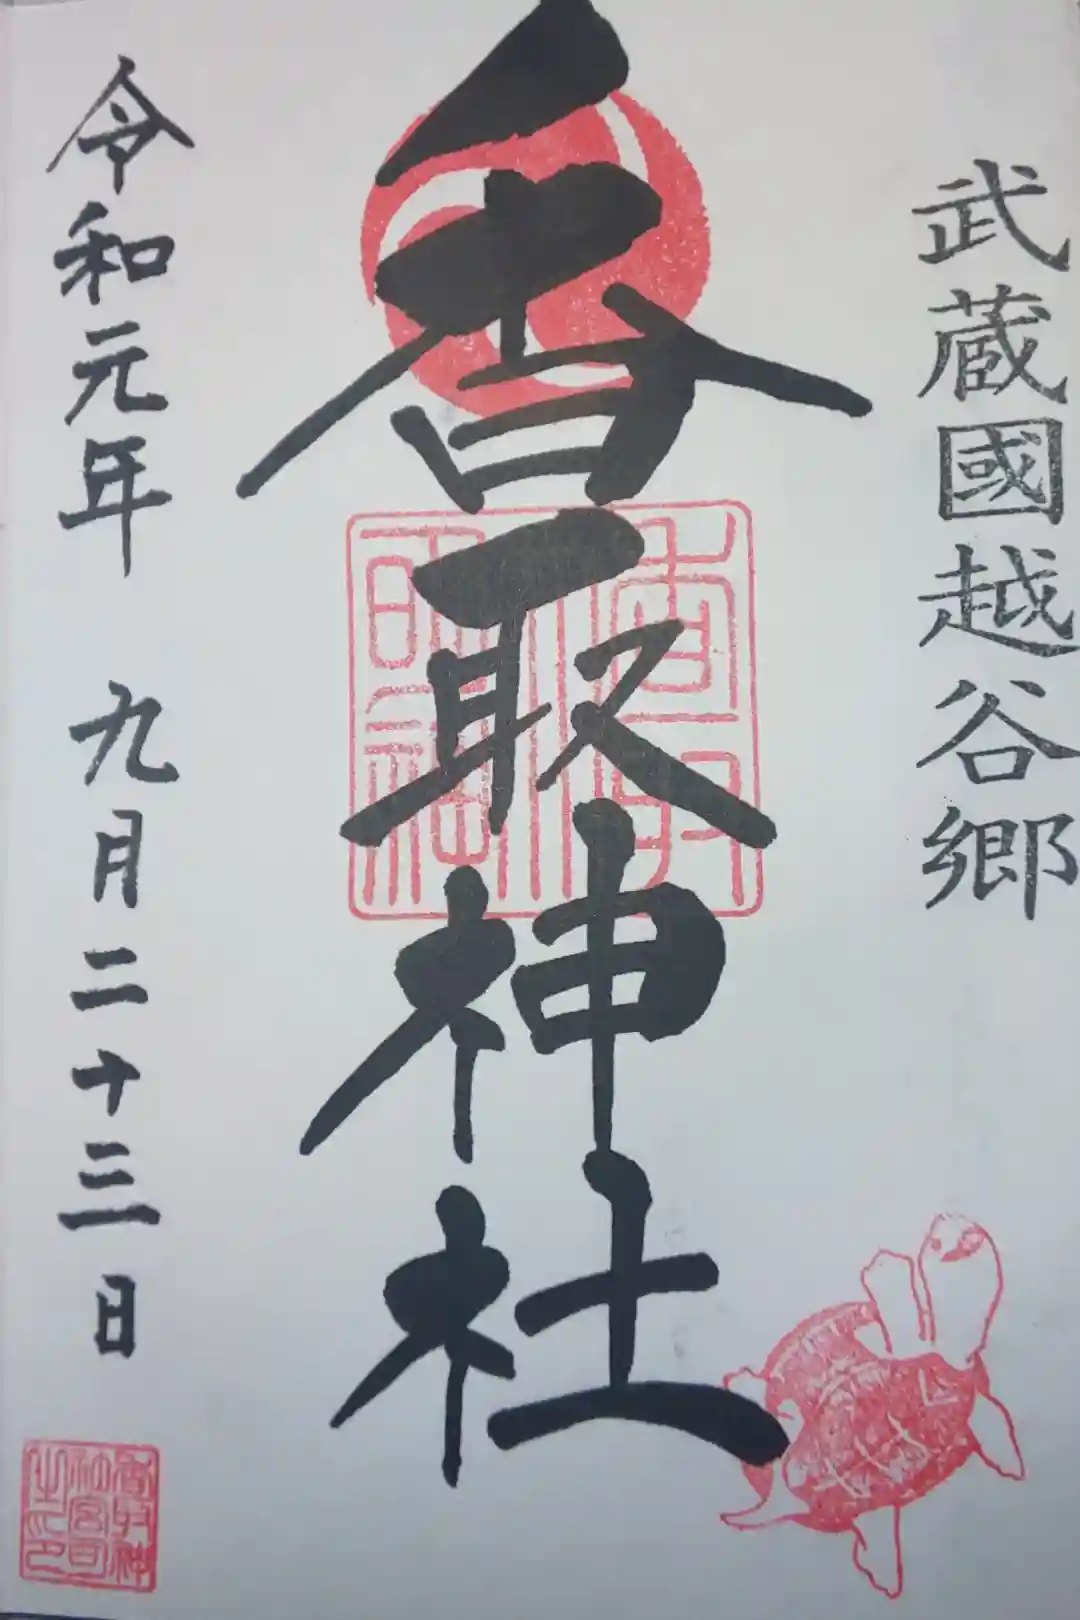 武蔵國越谷郷
香取神社
令和元年 九月二十三日
香取神社宮司之印